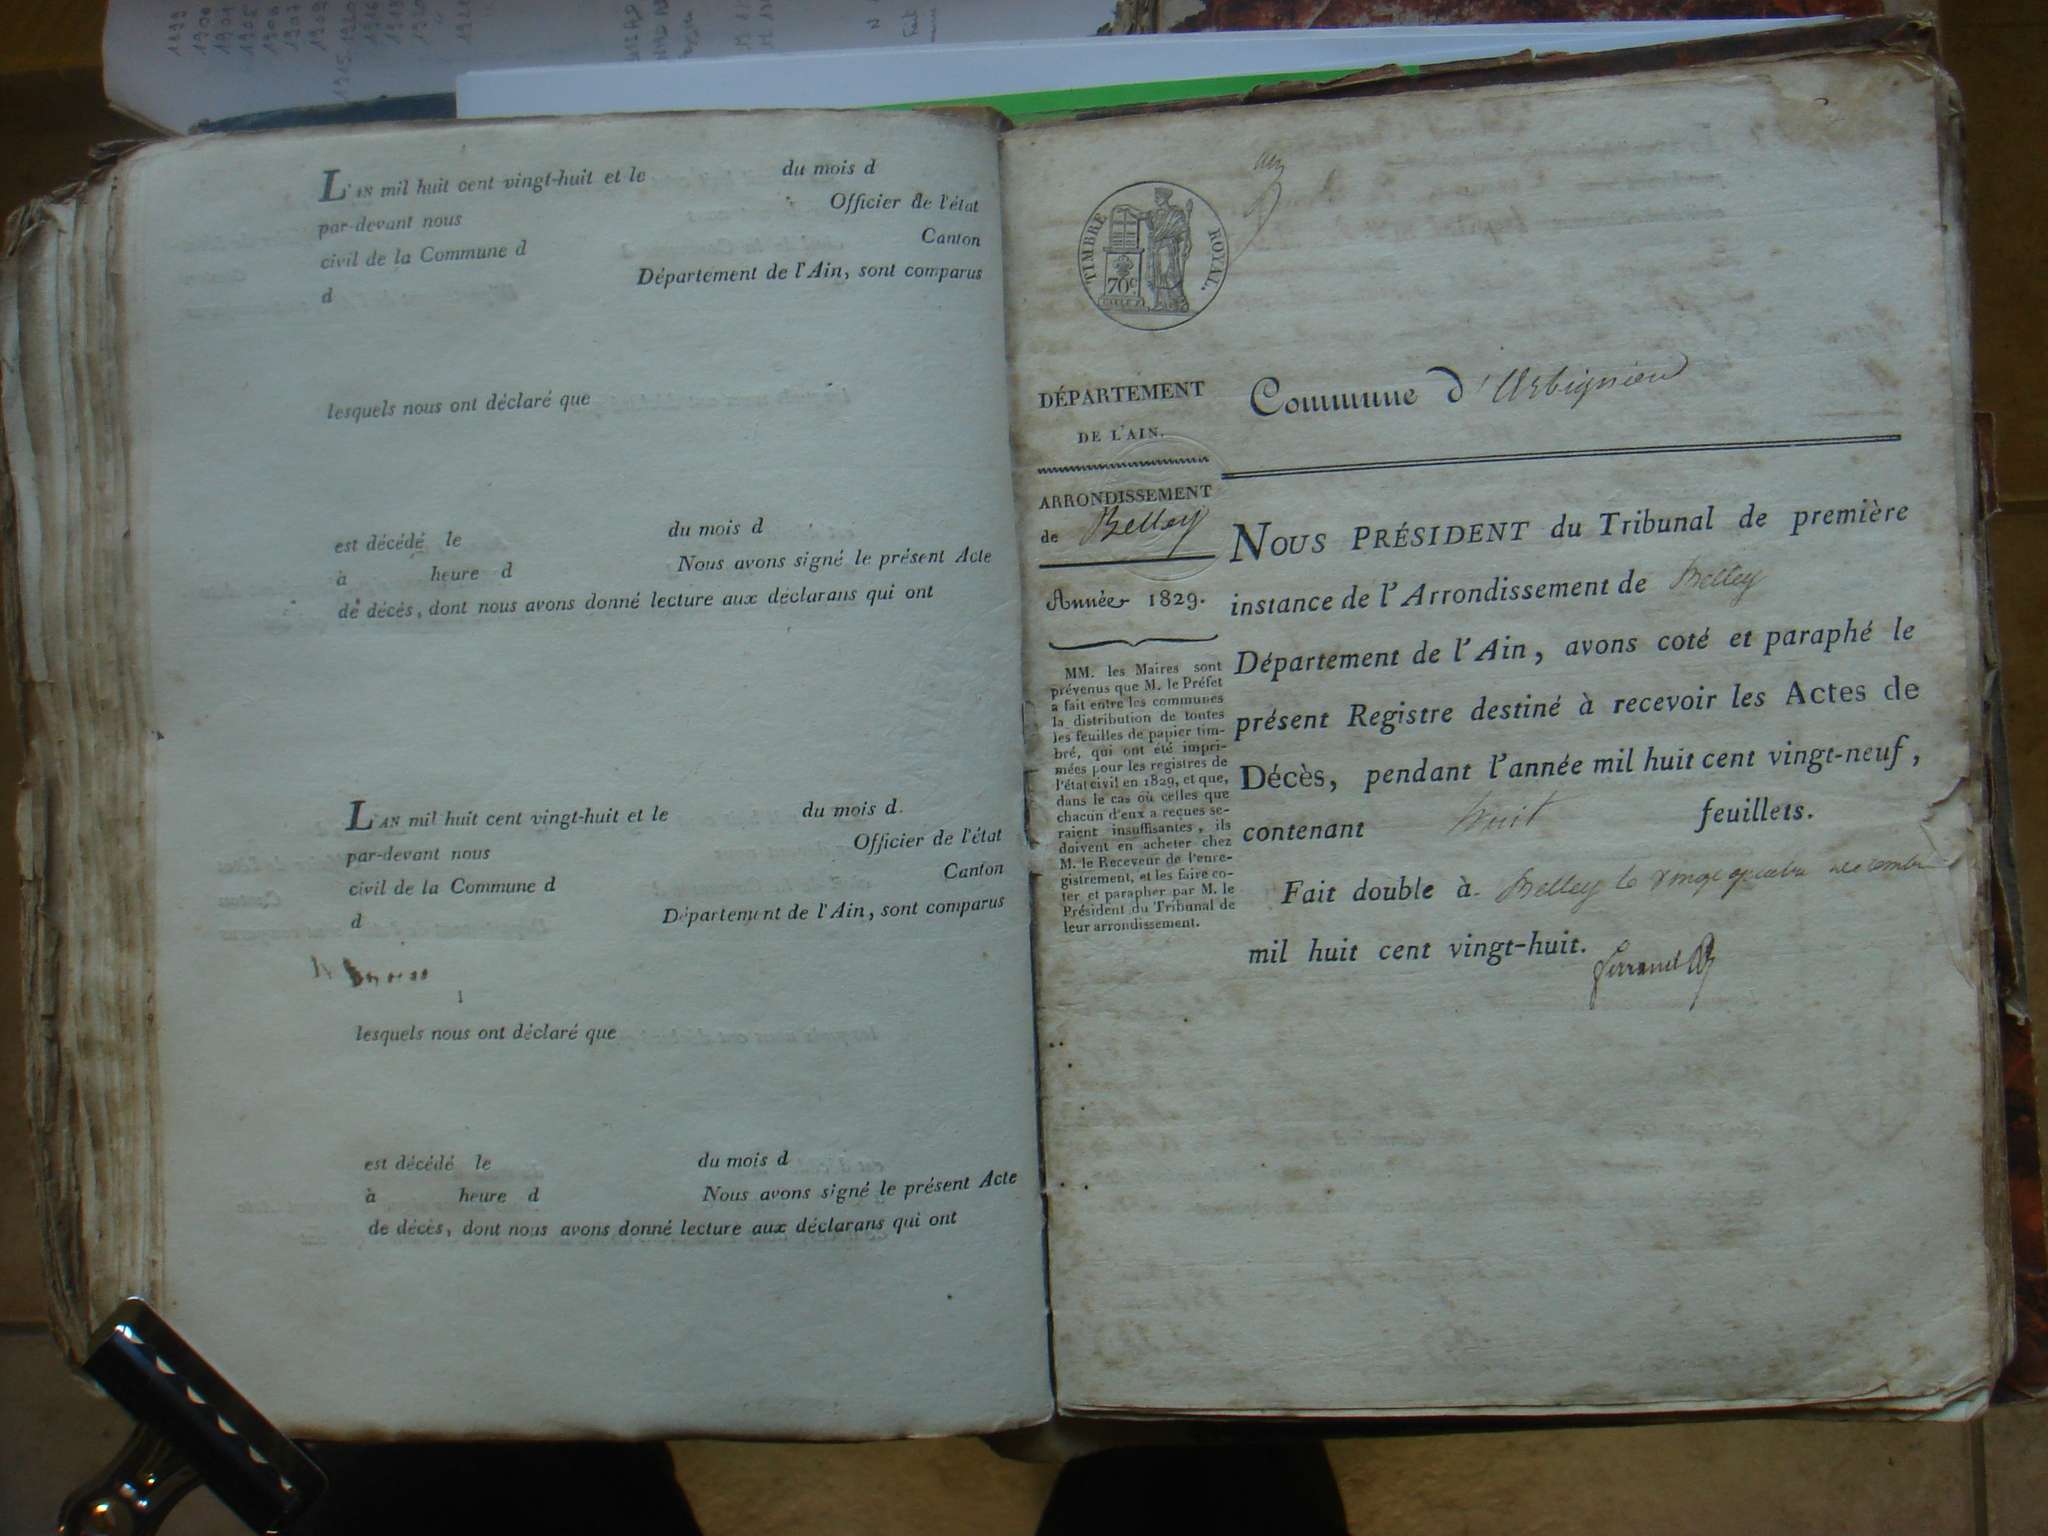 1899
1900
1901
1905
1906
1907
1909
1915-1920
1916
1918
1920
L'AN mil huit cent vingt-huit et le du mois d
par-devant nous Officier de l'état
civil de la Commune d Canton
d Département de l'Ain, sont comparus
lesquels nous ont déclaré que
est décédé le du mois d
à heure d Nous avons signé le présent Acte
de décès, dont nous avons donné lecture aux déclarans qui ont
L'AN mil huit cent vingt-huit et le du mois d
par-devant nous Officier de l'état
civil de la Commune d Canton
d Département de l'Ain, sont comparus
lesquels nous ont déclaré que
est décédé le du mois d
à heure d Nous avons signé le présent Acte
de décès, dont nous avons donné lecture aux déclarans qui ont
TIMBRE ROYAL.
70c
DÉPARTEMENT
DE L'AIN.
ARRONDISSEMENT
de Belley
Année 1829.
MM. les Maires sont
prévenus que M. le Préfet
a fait entre les communes
la distribution de toutes
les feuilles de papier tim-
bré, qui ont été impri-
mées pour les registres de
l'état civil en 1829, et que,
dans le cas où celles que
chacun d'eux a reçues se-
raient insuffisantes, ils
doivent en acheter chez
M. le Receveur de l'enre-
gistrement, et les faire co-
ter et parapher par M. le
Président du Tribunal de
leur arrondissement.
Commune d'Arbignieu
NOUS PRÉSIDENT du Tribunal de première
instance de l'Arrondissement de Belley
Département de l'Ain, avons coté et paraphé le
présent Registre destiné à recevoir les Actes de
Décès, pendant l'année mil huit cent vingt-neuf,
contenant huit feuillets.
Fait double à Belley le vingt quatre
mil huit cent vingt-huit.